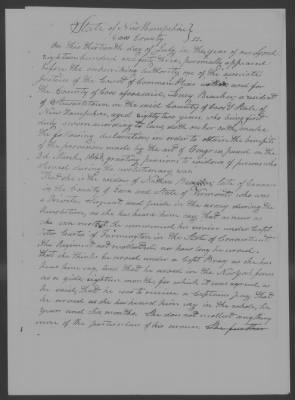 State of New Hampshire
Coos County ss.
On this thirteenth day of July in the year of our Lord
eighteen hundred and forty three, personally appeared
before the undersigning authority one of the associate
justices of the Court of Common Pleas within and for
the County of Coos aforesaid, Lucy a resident
of Stewartstown in the said County of Coos & State of
New Hampshire, aged eighty two years, who being first
duly sworn according to law, doth on her oath, make
the following declaration in order to obtain the benefits
of the provisions made by the act of Congress passed on the
3d March, 1843 granting pensions to widows of persons who
served during the revolutionary war
That she is the widow of Nathan late of Canaan
in the County of Essex and State of Vermont who was
a Private, Sergeant and guide in the army during the
Revolution, as she has heard him say, that as near as
she can now he commenced his service under Capt
of Farmington in the State of Connecticut
The Regiment not recollected, nor how long he served
that she thinks he served under a Capt. Bray as she has
heard him say, and that he served in the New york forces
as a guide eighteen months for which it was agreed, as
he said, that he was to receive a Captains pay. That
he served as she has heard him say in the whole, six
years and six months. She does not recollect anything
more of the particulars of his service She further